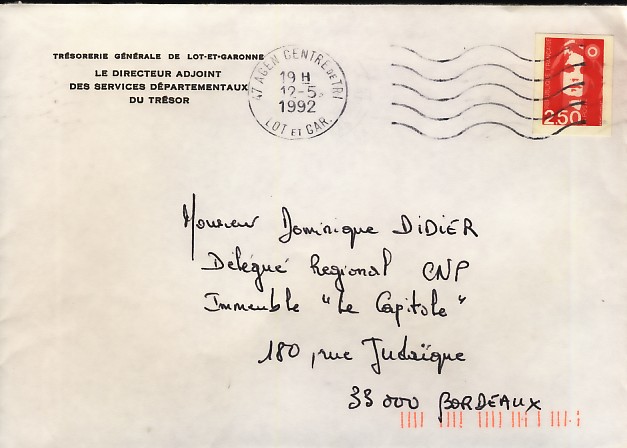 TRÉSORERIE GÉNÉRALE DE LOT-ET-GARONNE
LE DIRECTEUR ADJOINT
DES SERVICES DÉPARTEMENTAUX
DU TRÉSOR
47 AGEN CENTRE DE TRI
19 H
12-5
1992
LOT ET GAR.
RÉPUBLIQUE FRANÇAISE
2,50
Monsieur Dominique DIDIER
Délégué Regional CNP
Immeuble "Le Capitole"
180, rue Judaïque
33 000 BORDEAUX